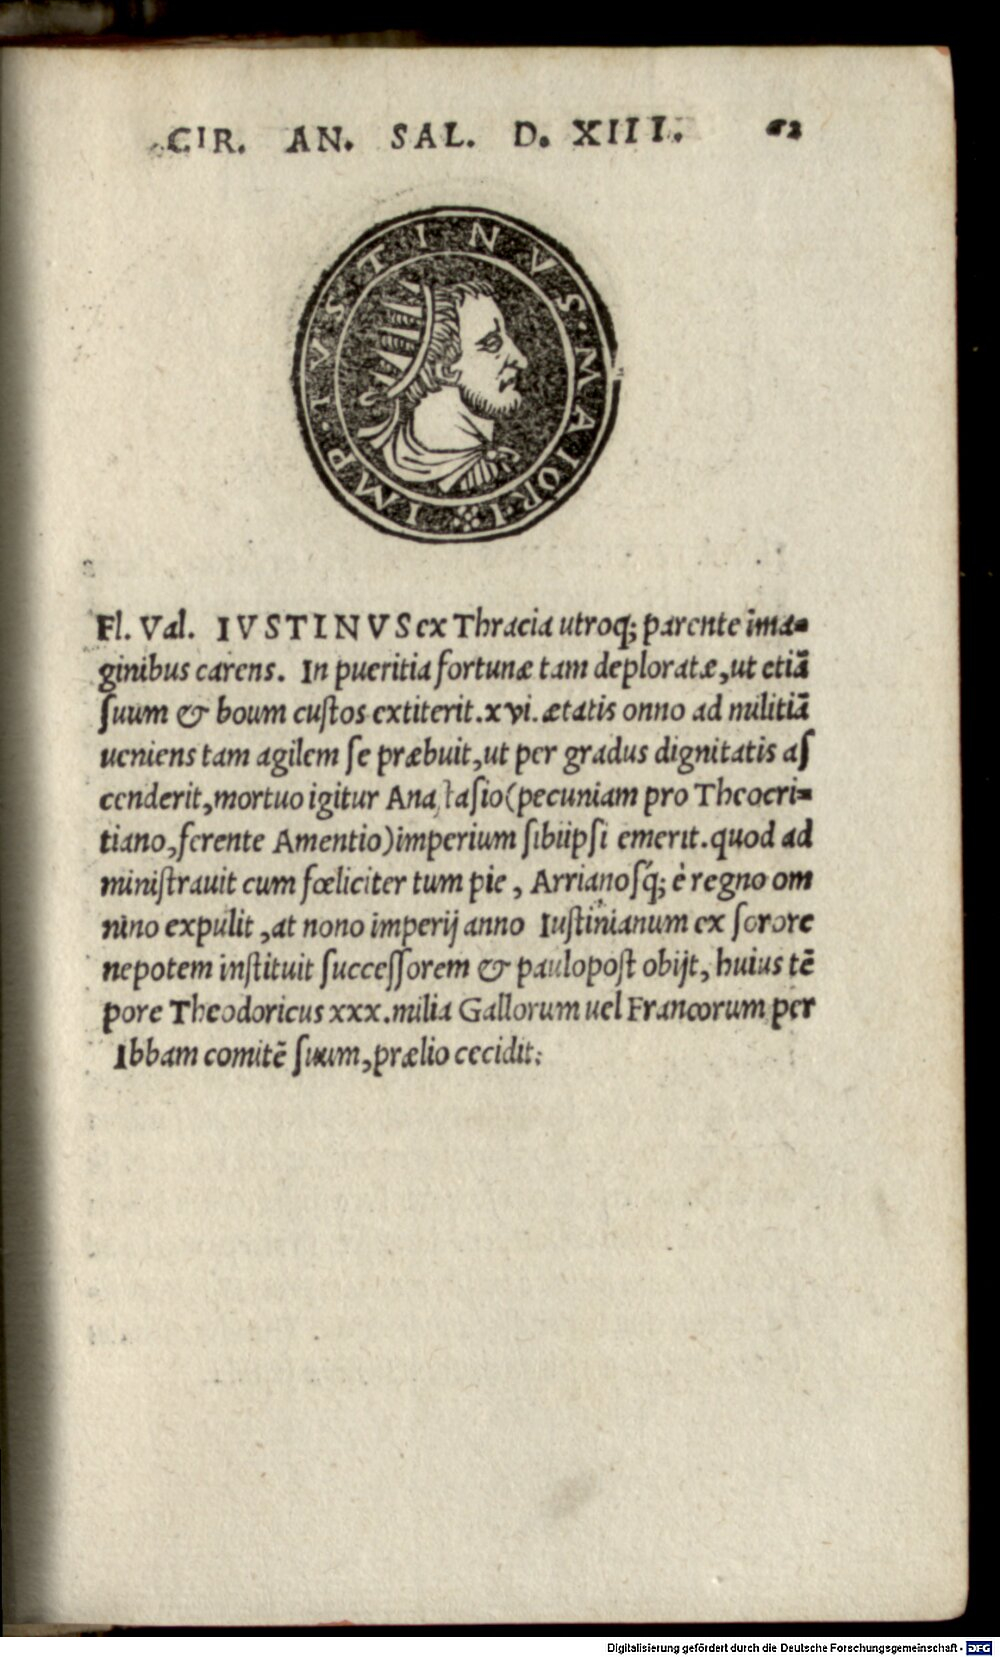 CIR. AN. SAL. D. XIII. 62
IMP · IVSTINVS · MAIORI
Fl. Val. IVSTINVS ex Thracia utroq; parente ima=
ginibus carens. In pueritia fortunæ tam deploratæ, ut etiã
suum & boum custos extiterit. xvi. ætatis onno ad militiã
ueniens tam agilem se præbuit, ut per gradus dignitatis as
cenderit, mortuo igitur Anastasio (pecuniam pro Theocri=
tiano, ferente Amentio) imperium sibiipsi emerit. quod ad
ministrauit cum fœliciter tum pie, Arrianosq́; è regno om
nino expulit, at nono imperij anno Iustinianum ex sorore
nepotem instituit successorem & paulopost obijt, huius tẽ
pore Theodoricus xxx. milia Gallorum uel Francorum per
Ibbam comitẽ suum, prælio cecidit.
Digitalisierung gefördert durch die Deutsche Forschungsgemeinschaft - DFG